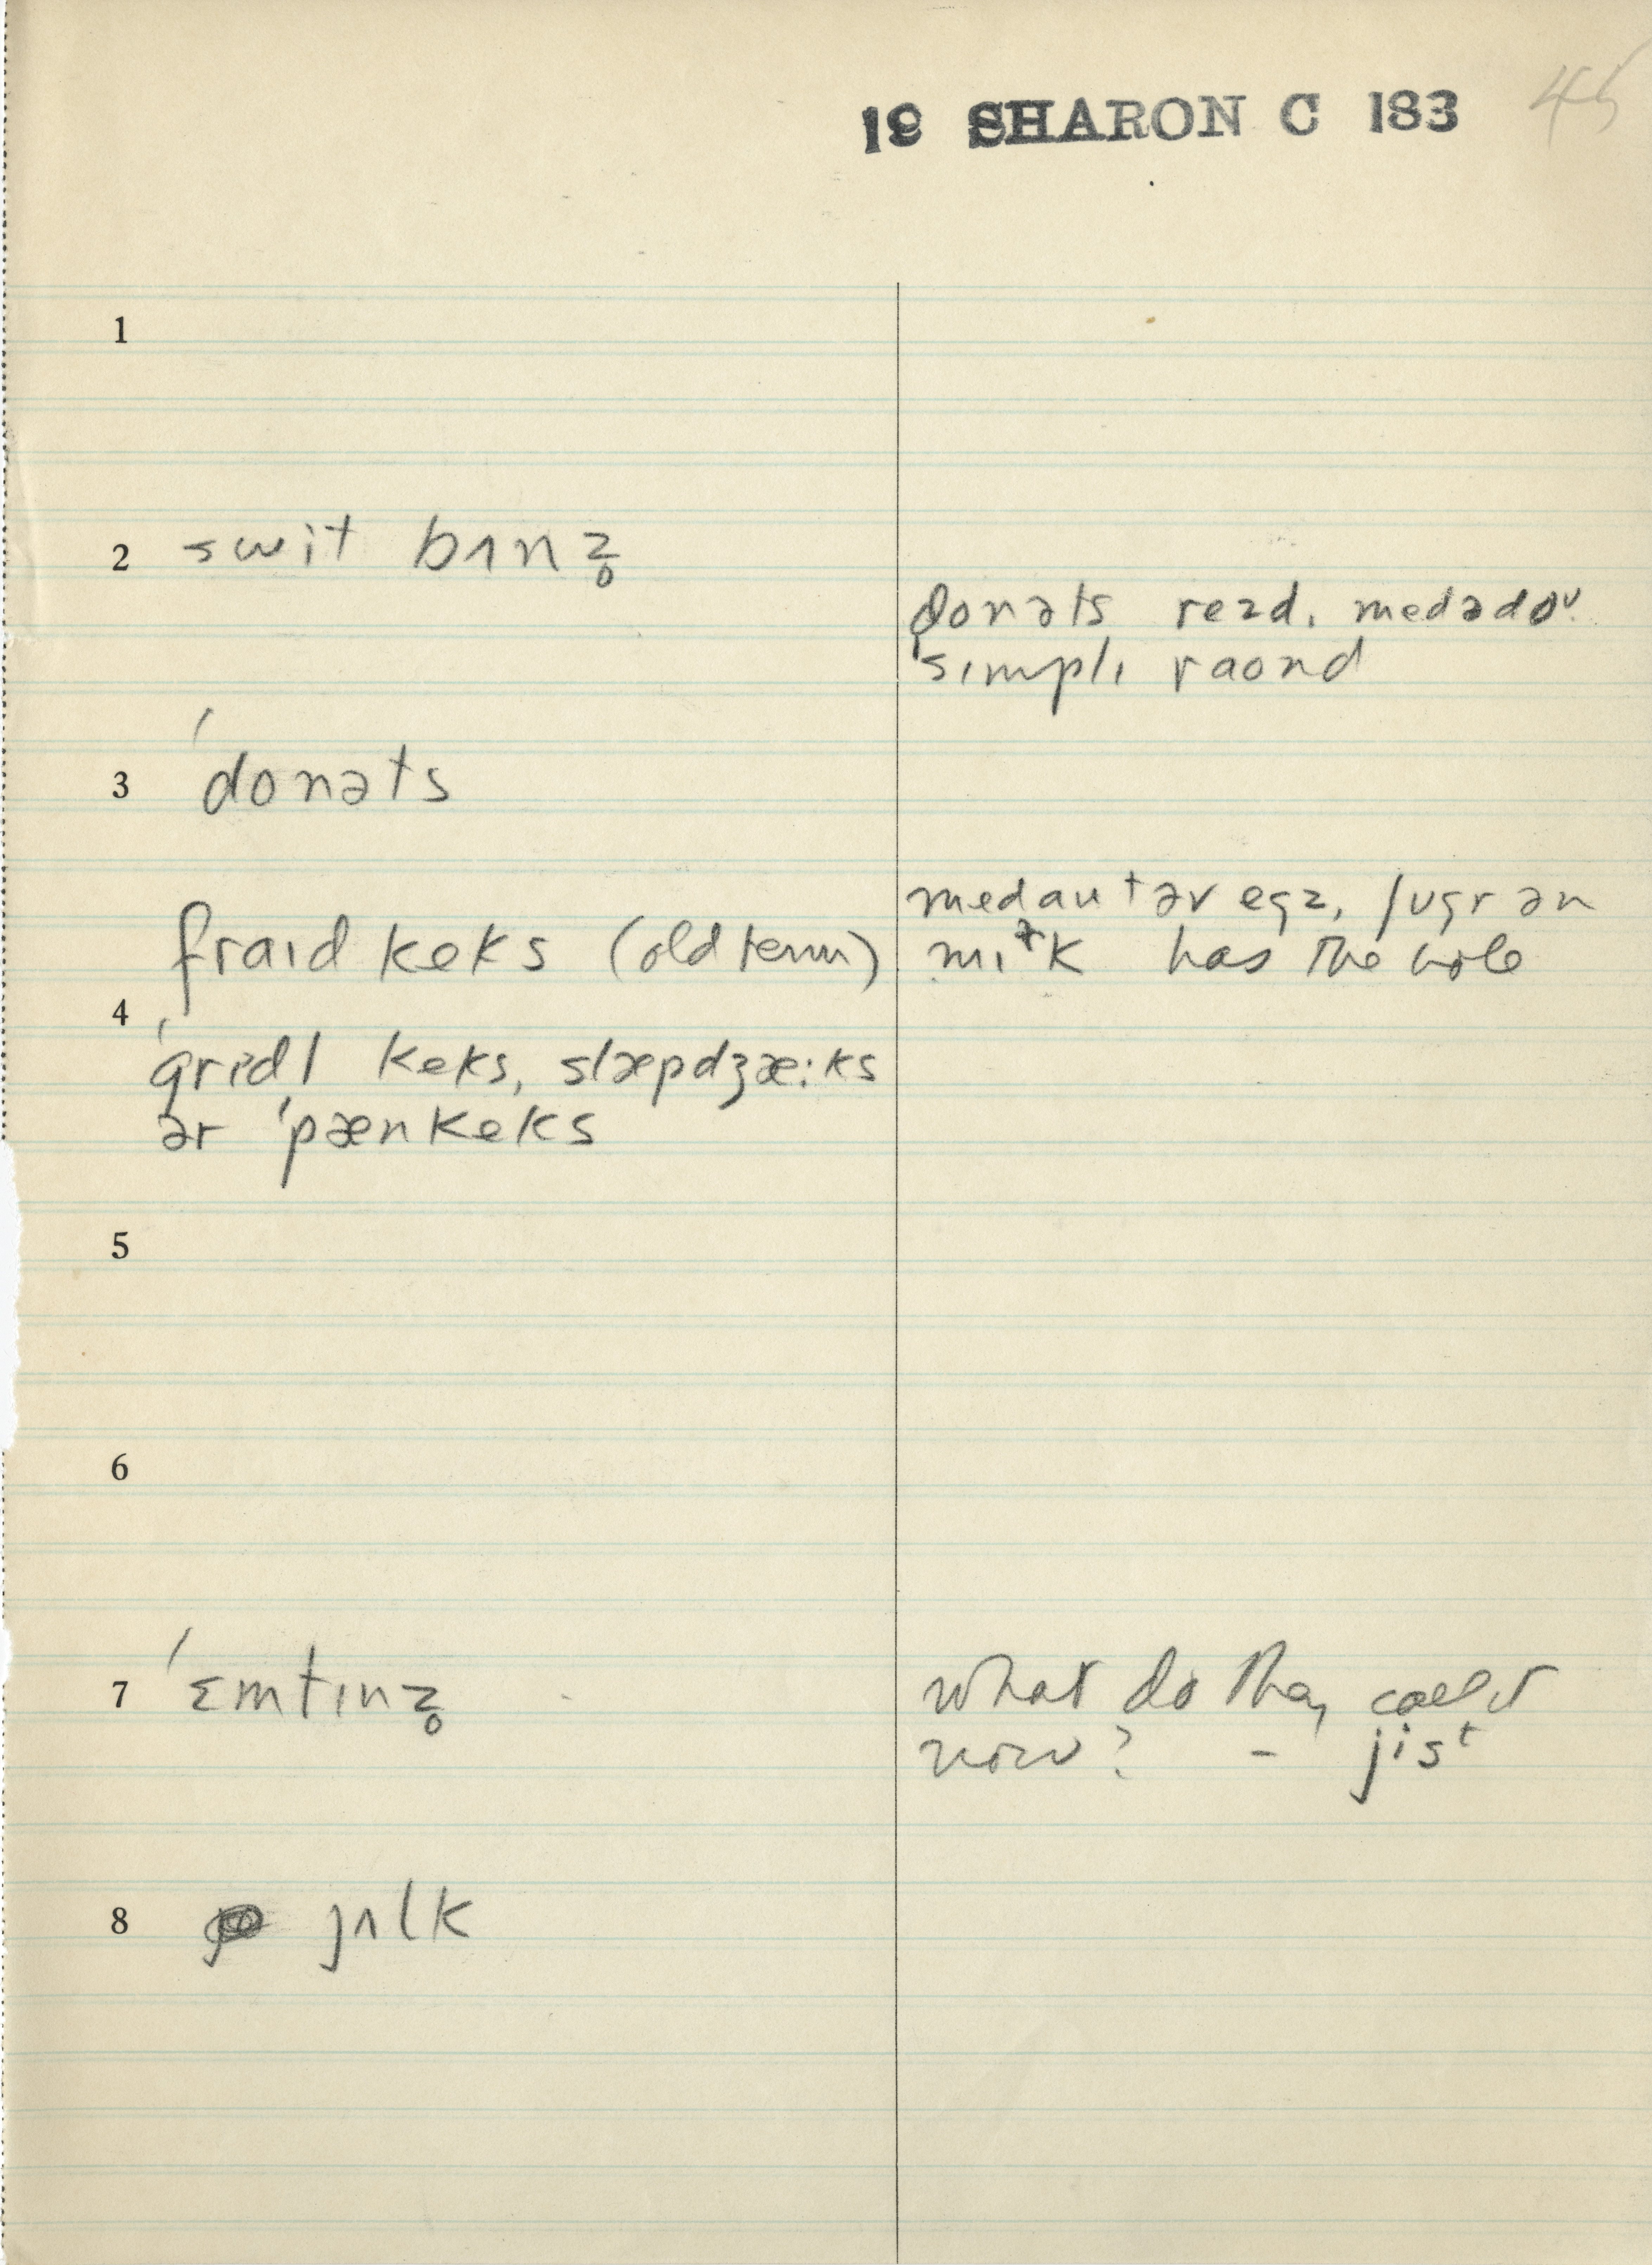 19 SHARON C 183 45
1
2 swit bʌnz̥
donəts rezd. medədoᵘ.
ˈsɪmplɪ raond
3 ˈdonəts
fraɪd keks (old term)
medautəv egz, ʃugr ən
mɪɫk has the hole
4
ˈgrɪdl keks, slæpdʒæ:ks
ər ˈpænkeks
5
6
7 ˈɛmtɪnz̥
what do they call it
now? – jist
8 jʌlk